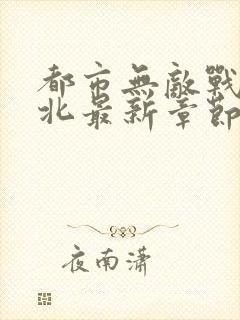 都市無敵戰
北最新章節
夜南瀟